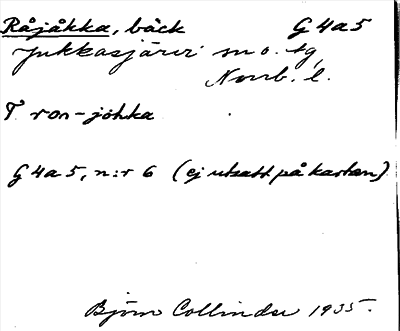 Råjåkka, bäck G4a5
Jukkasjärvi sn o. tg,
Norrb. l.
T ron-johka
G4a5, n:r 6 (ej utsatt på kartan)
Björn Collinder 1935.